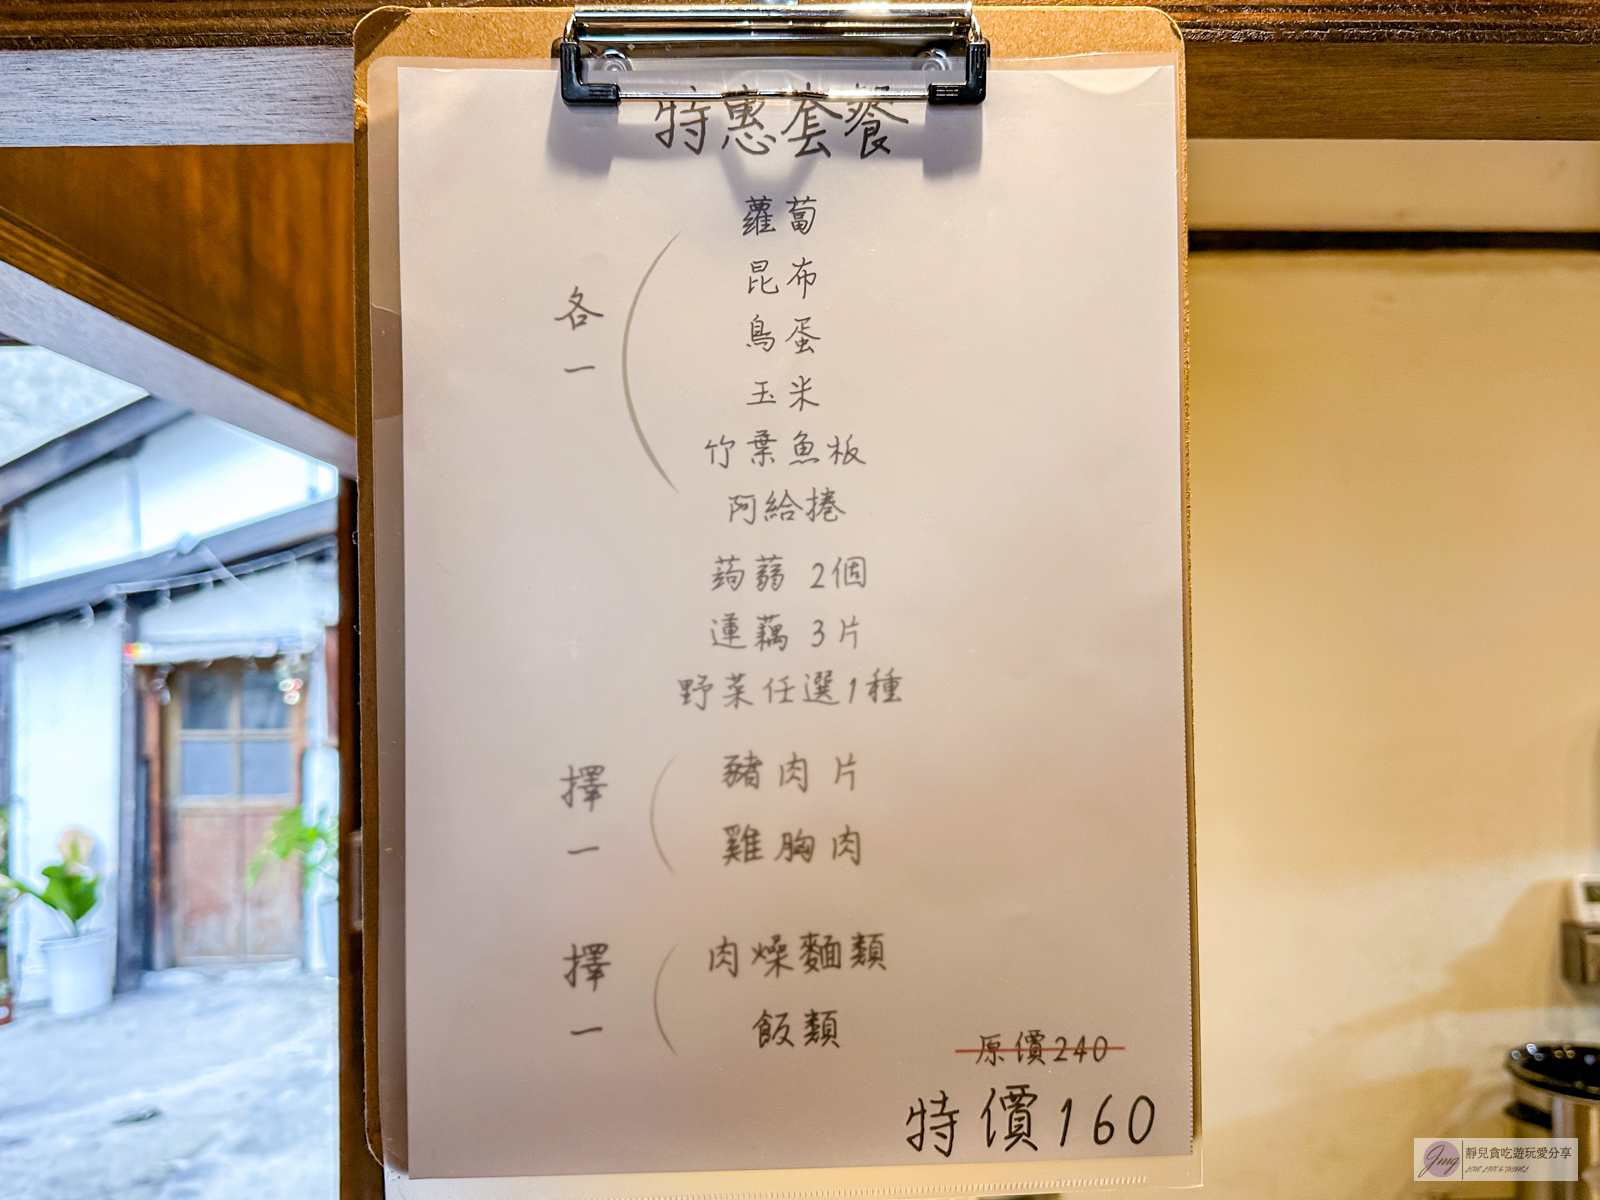 特惠套餐
各一
蘿蔔
昆布
鳥蛋
玉米
竹葉魚板
阿給捲
蒟蒻 2個
蓮藕 3片
野菜任選1種
擇一
豬肉片
雞胸肉
擇一
肉燥麵類
飯類
原價240
特價160
Jmg
靜兒貪吃遊玩愛分享